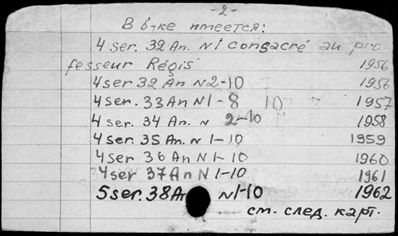 -2-
В б-ке имеется:
4 ser. 32 An. N1 consacré au pro
fesseur Régis 1956
4 ser 32 An N2-10 1956
4 ser. 33 An N1-8 10 1957
4 ser. 34 An. N 2-10 1958
4 ser. 35 An. N 1-10 1959
4 ser 36 An N 1-10 1960
4 ser 37 An N 1-10 1961
5 ser. 38 An N1-10 1962
см. след. карт.